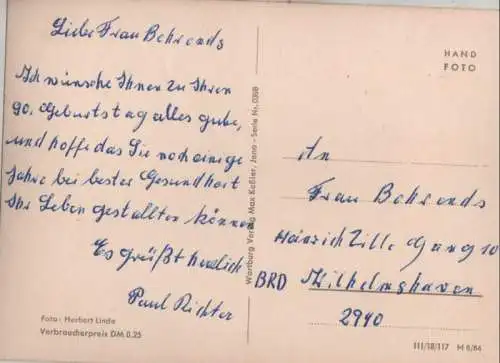 Liebe Frau Behrends
Ich wünsche Ihnen zu Ihren
90. Geburtstag alles gute,
und hoffe das Sie noch einige
Jahre bei bester Gesundheit
Ihr Leben gestallten können
Es grüßt herzlich
Paul Richter
Foto: Herbert Linde
Verbraucherpreis DM 0.25
Wartburg Verlag Max Keßler, Jena - Serie Nr.
HAND
FOTO
An
Frau Behrends
Heinrich Zille Gang 10
BRD Wilhelmshaven
2940
III/18/117 M 6/66